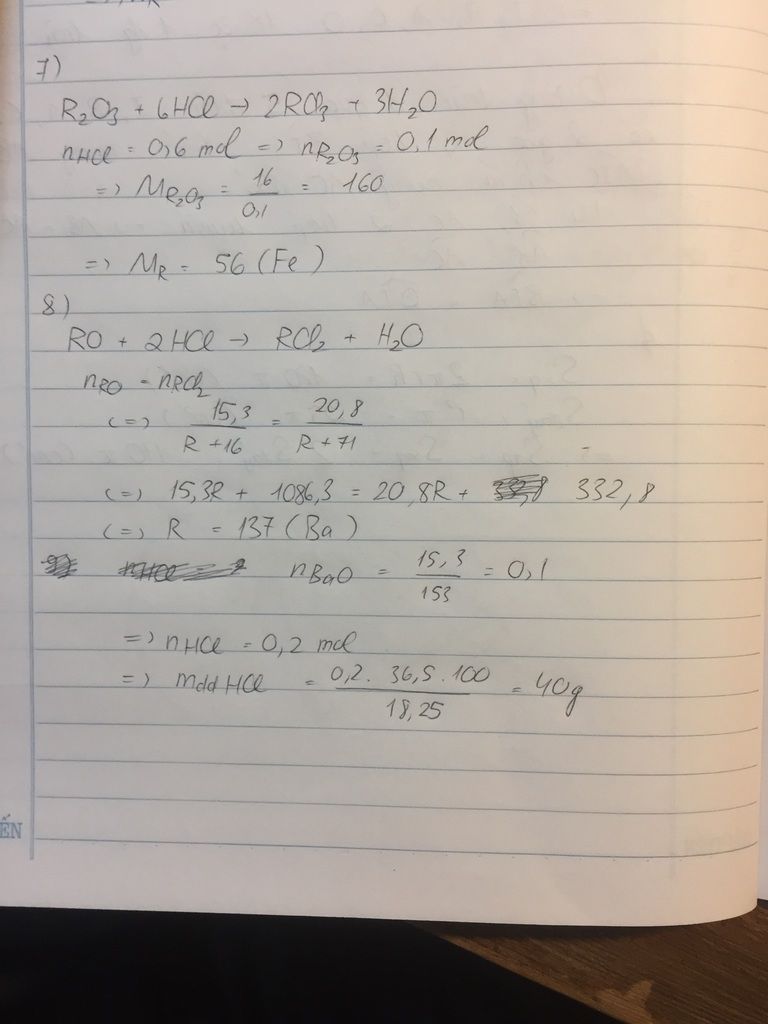 7)
R₂O₃ + 6HCl → 2RCl₃ + 3H₂O
nHCl = 0,6 mol => nR₂O₃ = 0,1 mol
=> MR₂O₃ = 16/0,1 = 160
=> MR = 56 (Fe)
8)
RO + 2HCl → RCl₂ + H₂O
nRO = nRCl₂
<=> 15,3/R+16 = 20,8/R+71
<=> 15,3R + 1086,3 = 20,8R + 332,8
<=> R = 137 (Ba)
nBaO = 15,3/153 = 0,1
=> nHCl = 0,2 mol
=> mdd HCl = 0,2. 36,5. 100/18,25 = 40g
ẾN